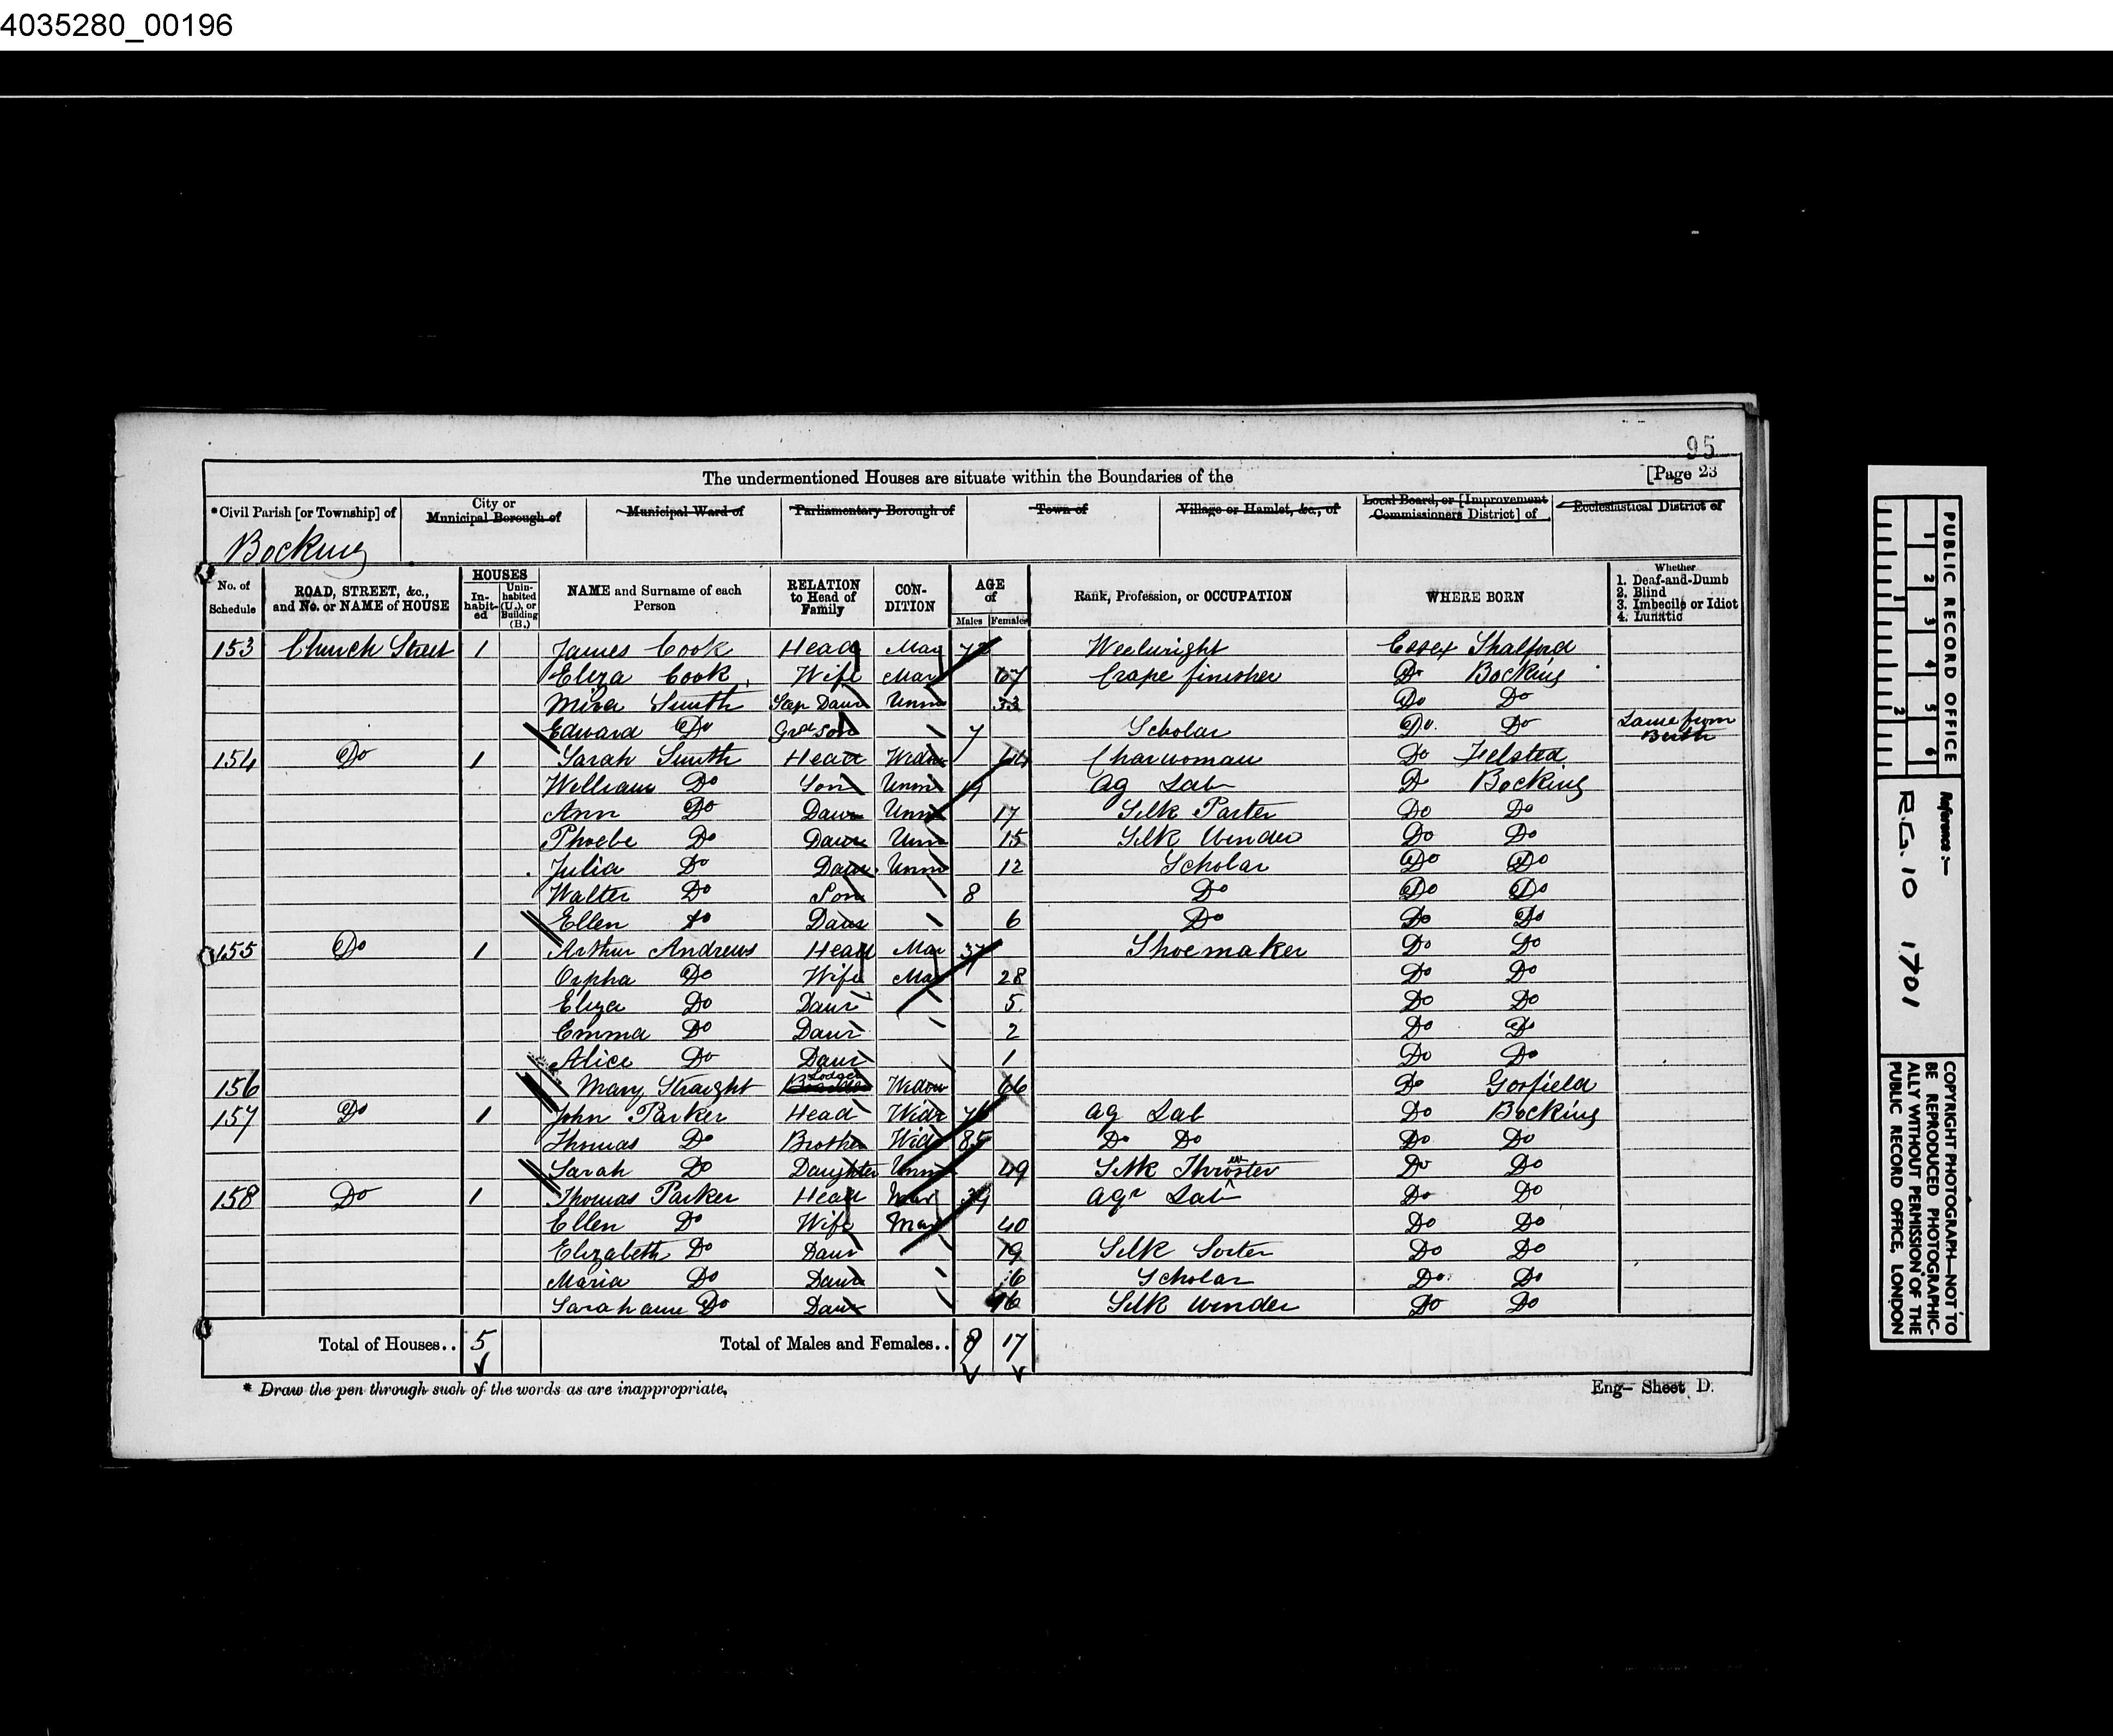 4035280_00196
95
The undermentioned Houses are situate within the Boundaries of the [Page 23
*Civil Parish [or Township] of City or Municipal Borough of Municipal Ward of Parliamentary Borough of Town of Village or Hamlet, &c., of Local Board, or [Improvement Commissioners District] of Ecclesiastical District of
Bocking
No. of Schedule ROAD, STREET, &c., and No. or NAME of HOUSE HOUSES Inhabited Uninhabited (U.), or Building (B.) NAME and Surname of each Person RELATION to Head of Family CONDITION AGE of Males Females Rank, Profession, or OCCUPATION WHERE BORN Whether 1. Deaf-and-Dumb 2. Blind 3. Imbecile or Idiot 4. Lunatic
153 Church Street 1 James Cook Head Mar 72 Weelwright Essex Shalford
Eliza Cook Wife Mar 67 Crape finisher Do Bocking
Smith Step Daur Unm 33 Do Do
Edward Do Grd son 7 Scholar Do Do Lame from Birth
154 Do 1 Sarah Smith Head Widow 44 Charwoman Do Felsted
William Do Son Unm 19 Ag Lab Do Bocking
Ann Do Daur Unm 17 Silk Parter Do Do
Phoebe Do Daur Unm 15 Silk Winder Do Do
Julia Do Daur Unm 12 Scholar Do Do
Walter Do Son 8 Do Do Do
Ellen Do Daur 6 Do Do Do
155 Do 1 Arthur Andrews Head Mar 37 Shoemaker Do Do
Orpha Do Wife Mar 28 Do Do
Eliza Do Daur 5 Do Do
Emma Do Daur 2 Do Do
Alice Do Daur 1 Do Do
156 Mary Straight Lodger Widow 66 Do Gosfield
157 Do 1 John Parker Head Widr 76 Ag Lab Do Bocking
Thomas Do Brother Widr 85 Do Do Do Do
Sarah Do Daughter Unm 49 Silk Throwster Do Do
158 Do 1 Thomas Parker Head Mar 39 Agr Lab Do Do
Ellen Do Wife Mar 40 Do Do
Elizabeth Do Daur 19 Silk Sorter Do Do
Maria Do Daur 6 Scholar Do Do
Sarah ann Do Daur 16 Silk Winder Do Do
Total of Houses.. 5 Total of Males and Females.. 8 17
* Draw the pen through such of the words as are inappropriate. Eng— Sheet D.
PUBLIC RECORD OFFICE
1 2 3 4 5 6
1 2
Reference :—
R.G. 10 1701
COPYRIGHT PHOTOGRAPH—NOT TO
BE REPRODUCED PHOTOGRAPHIC-
ALLY WITHOUT PERMISSION OF THE
PUBLIC RECORD OFFICE, LONDON